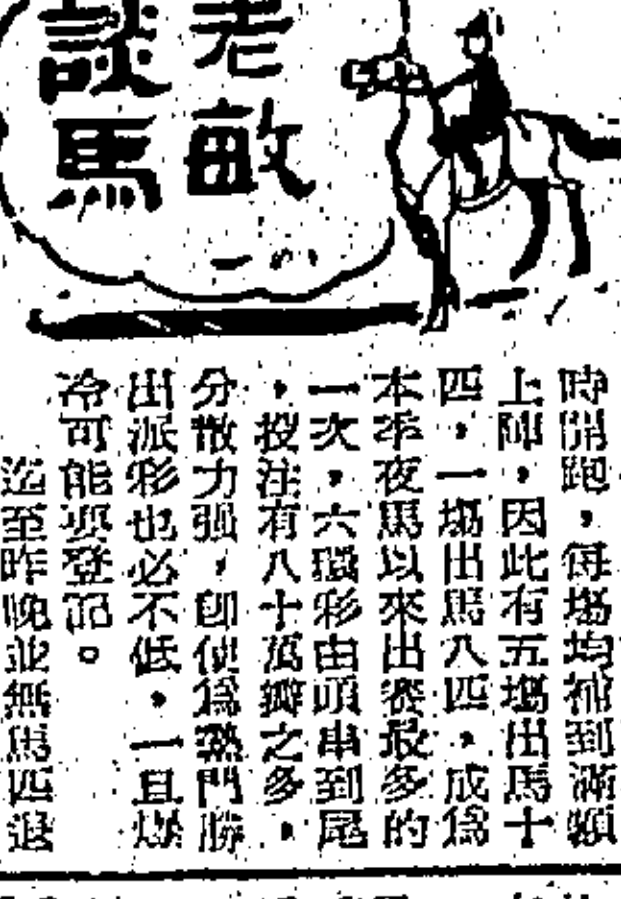 老敏
談馬
時開跑，每場均補到滿額
上陣，因此有五場出馬十
四，一場出馬八匹，成為
本季夜馬以來出賽最多的
一次，六環彩由頭串到尾
，投注有八十萬瓣之多，
分散力强，卽使為熱門勝
出派彩也必不低，一旦爆
冷可能要登記。
迄至昨晚並無馬匹退